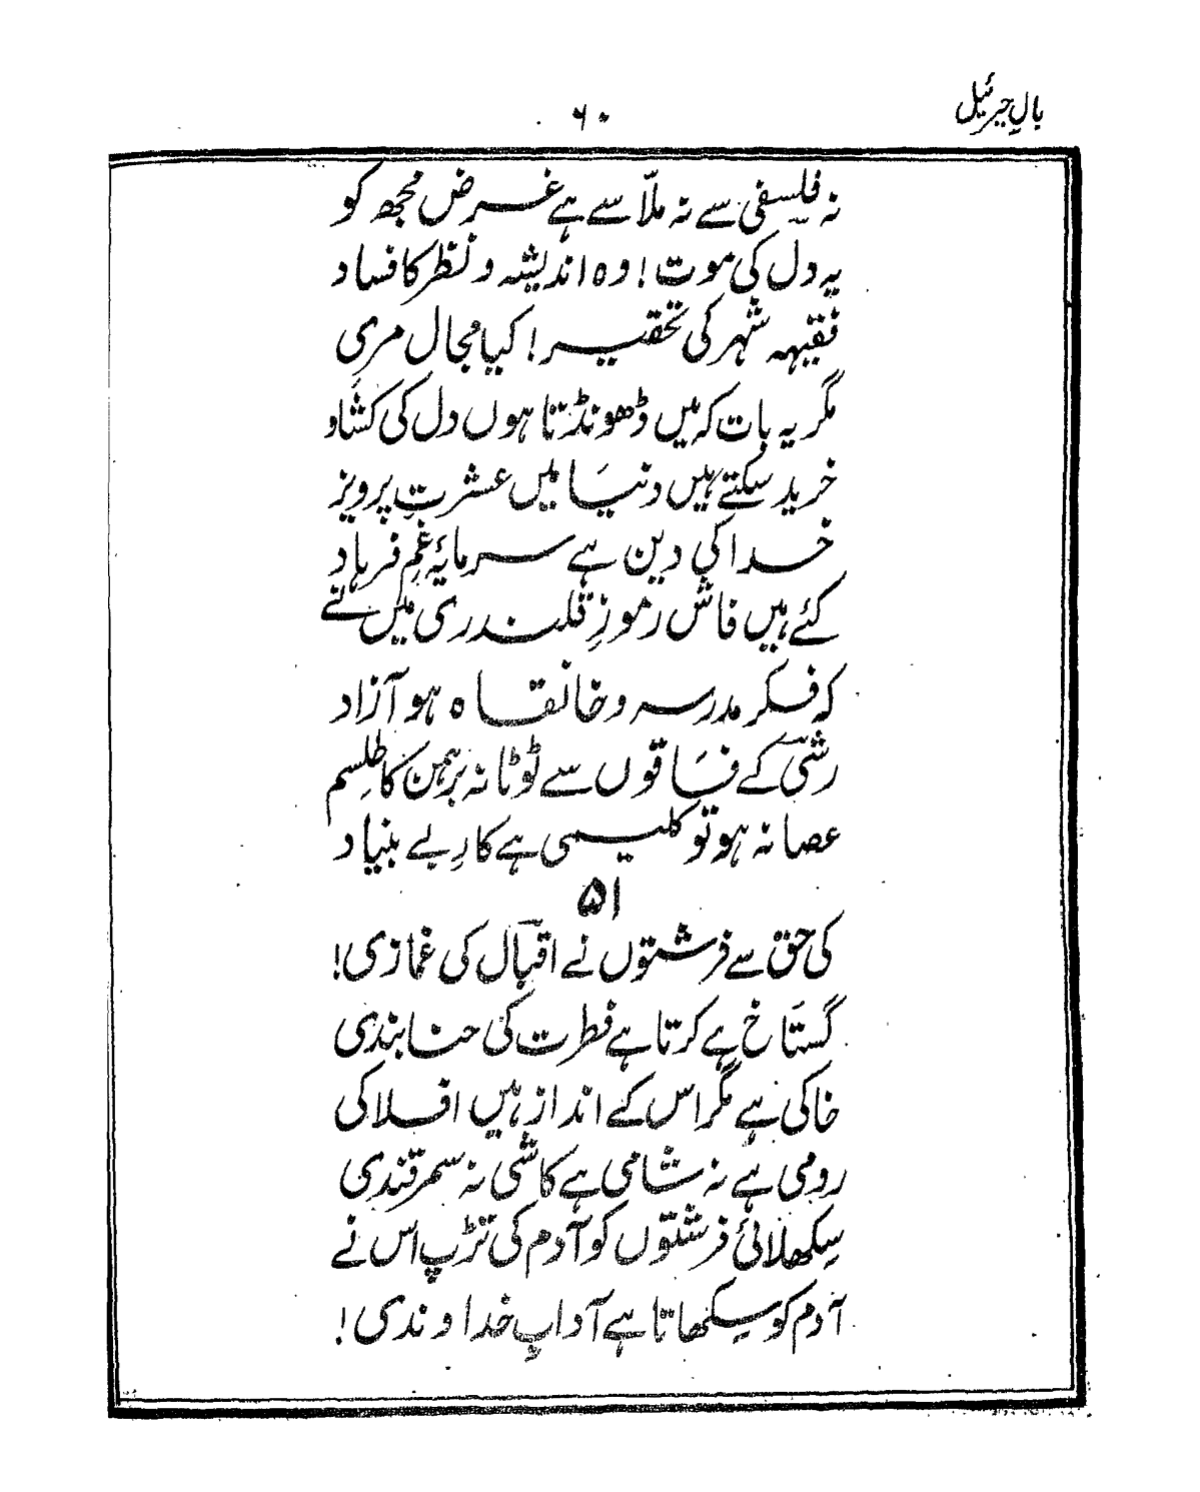 بالِ جبرئیل
۶۰
نہ فلسفی سے نہ ملّا سے ہے غرض مجھ کو
یہ دل کی موت! وہ اندیشہ و نظر کا فساد
فقیہہ شہر کی تحقیر! کیا مجال مری
مگر یہ بات کہ میں ڈھونڈتا ہوں دل کی کشاد
خرید سکتے ہیں دنیا میں عشرتِ پرویز
خدا کی دین ہے سرمایۂ غمِ فرہاد
کئے ہیں فاش رموزِ قلندری میں نے
کہ فکر مدرسہ و خانقاہ ہو آزاد
رشی کے فاقوں سے ٹوٹا نہ برہمن کا طلِسم
عصا نہ ہو تو کلیمی ہے کارِ بے بنیاد
۵۱
کی حق سے فرشتوں نے اقبال کی غمازی!
گستاخ ہے کرتا ہے فطرت کی حنا بندی
خاکی ہے مگر اس کے انداز ہیں افلاکی
رومی ہے نہ شامی ہے کاشی نہ سمرقندی
سِکھلائی فرشتوں کو آدم کی تڑپ اس نے
آدم کو سِکھاتا ہے آدابِ خداوندی!